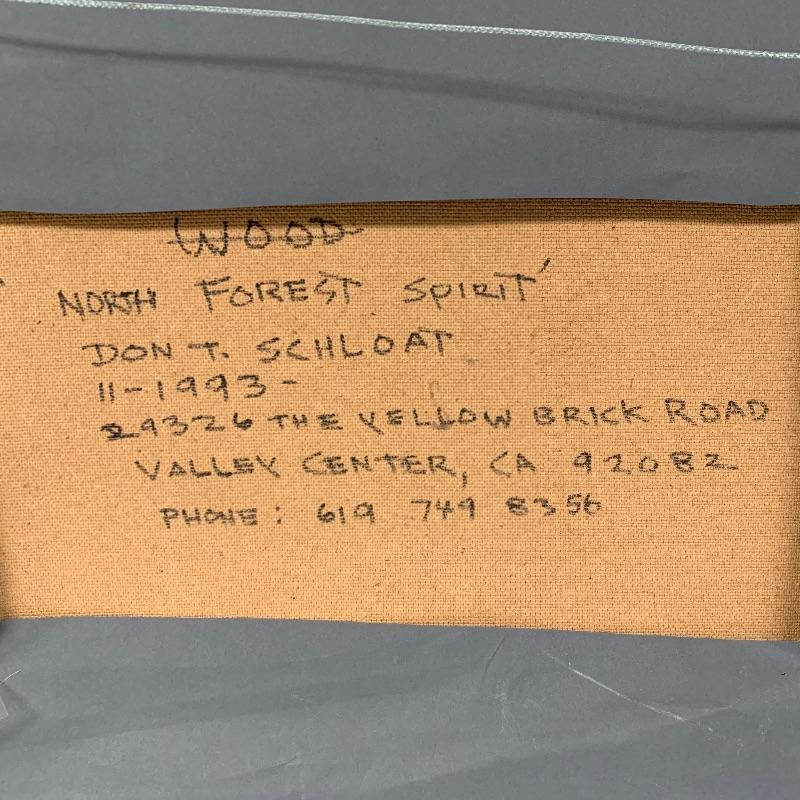 WOOD
'NORTH FOREST SPIRIT'
DON T. SCHLOAT
11-1993-
29326 THE YELLOW BRICK ROAD
VALLEY CENTER, CA 92082
PHONE: 619 749 8356